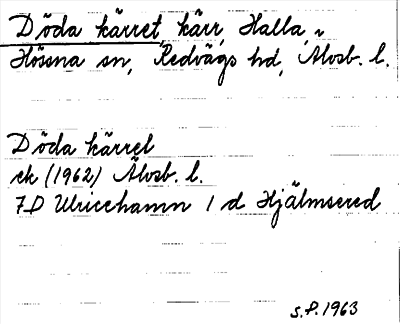 Döda kärret, kärr, Halla,
Hössna sn, Redvägs hd, Älvsb. l.
Döda kärret
ek (1962) Älvsb. l.
7D Ulricehamn 1 d Hjälmsered
S.P. 1963